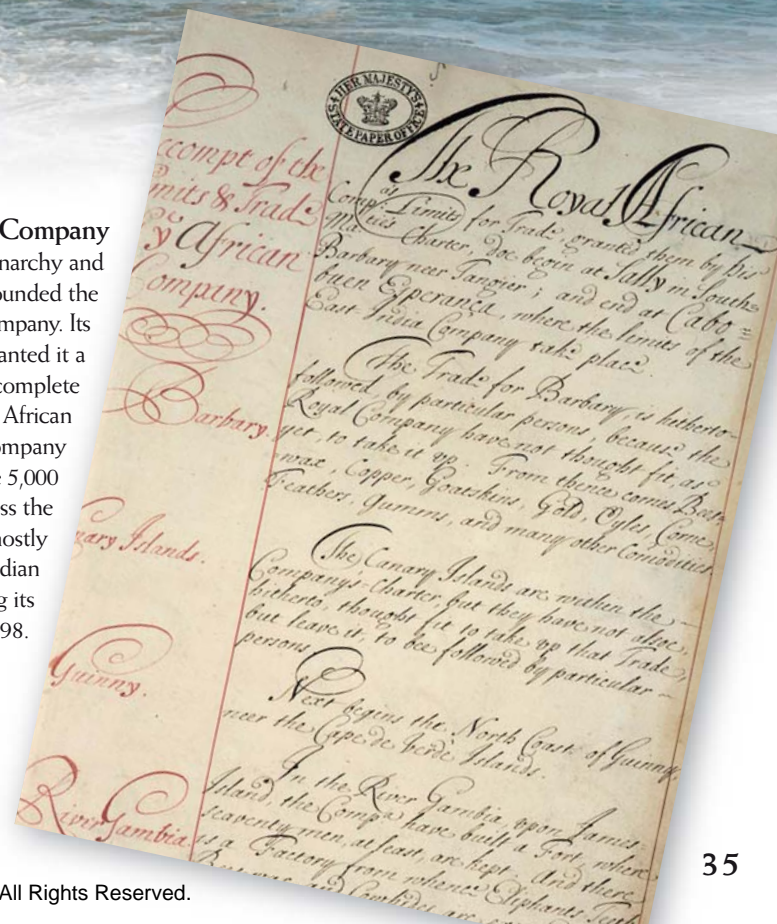 Company
narchy and
ounded the
mpany. Its
anted it a
complete
African
ompany
e 5,000
ss the
mostly
dian
g its
98.
HER MAJESTY'S
STATE PAPER OFFICE
ccompt of the
mits & Trade
y African
Company.
Barbary.
nary Islands.
Guinny.
River Gambia.
The Royal African
Comp:as Limits for Trade granted them by his
Ma:ties Charter, doe begin at Sally in South
Barbary neer Tangier; and end at Cabo =
buen Esperança, where the limits of the
East-India Company take place.
The Trade for Barbary is hitherto
followed by particular persons, because the
Royal Company have not thought fit, as
yet, to take it up. From thence comes Bees
wax, Copper, Goatskins, Gold, Oyles, Corne,
Feathers, Gumms, and many other Comodities.
The Canary Islands are within the —
Companys Charter but they have not alsoe,
hitherto, thought fit to take up that Trade,
but leave it, to be followed by particular —
persons.
Next begins the North Coast of Guinny,
neer the Cape de Verde Islands.
In the River Gambia, upon James
Island, the Compa: have built a Fort, where
seaventy men, at least, are kept. And there
is a Factory from whence Eliphants-Teeth
and Cowhides are
35
All Rights Reserved.